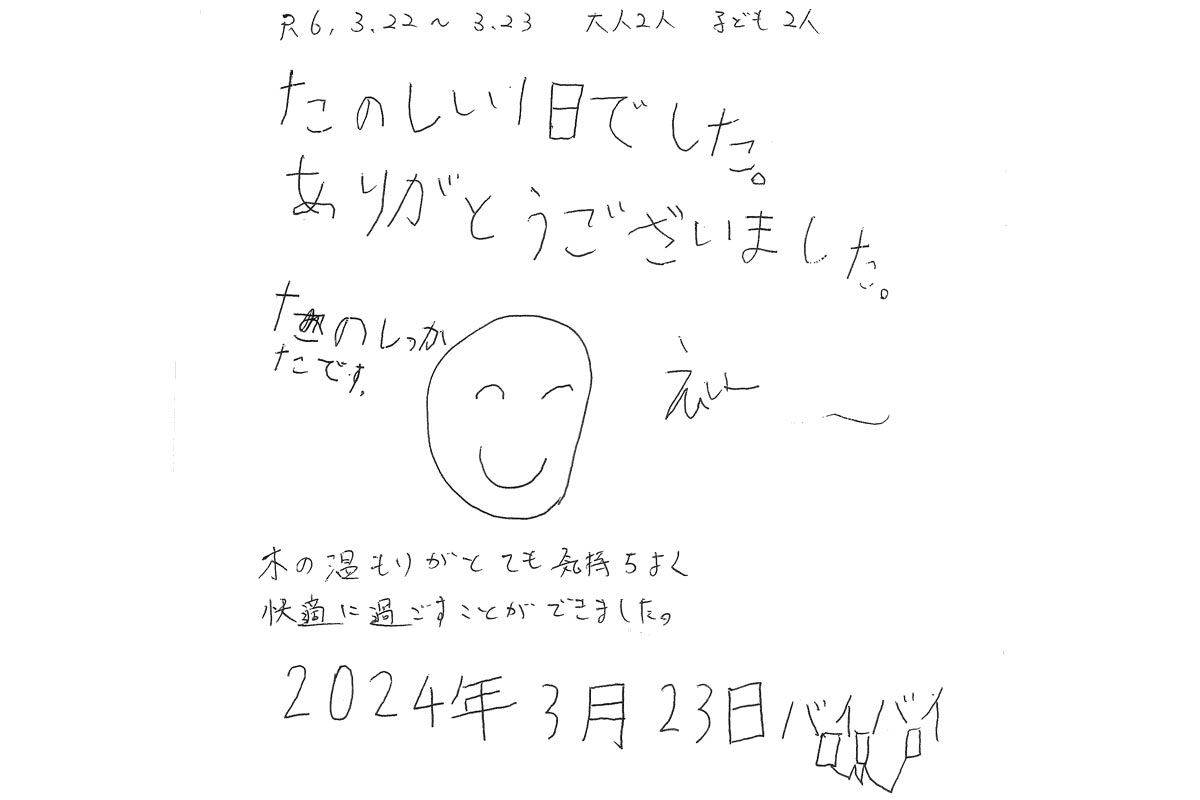 R6, 3.22～3.23 大人2人 子ども2人
たのしい1日でした。
ありがとうございました。
たのしっか
たです。
木の温もりがとても気持ちよく
快適に過ごすことができました。
2024年3月23日バイバイ